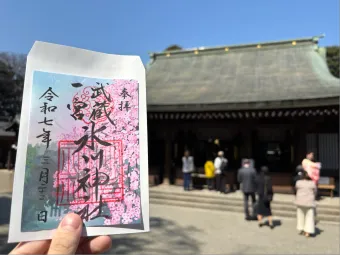 奉拝
武蔵
一宮
氷川神社
令和七年三月二三日